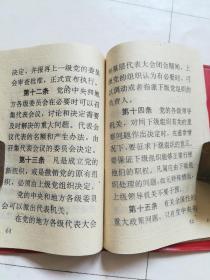 决定，并报再上一级党的委员
会审查批准，正式宣布执行。
第十二条 党的中央和地
方各级委员会在必要时可以召
集代表会议，讨论和决定需要
及时解决的重大问题。代表会
议代表的名额和产生办法，由
召集代表会议的委员会决定。
第十三条 凡是成立党的
新组织，或是撤销党的原有组
织，必须由上级党组织决定。
党的中央和地方各级委员
会可以派出代表机关。
在党的地方各级代表大会
64
和基层代表大会闭会期间，上
级党的组织认为有必要时，可
以调动或者指派下级党组织的
负责人。
第十四条 党的各级领导
机关，对同下级组织有关的重
要问题作出决定时，在通常情
况下，要征求下级组织的意见。
要保证下级组织能够正常行使
他们的职权。凡属应由下级组
织处理的问题，如无特殊情况，
上级领导机关不要干预。
第十五条 有关全国性的
重大政策问题，只有党中央有